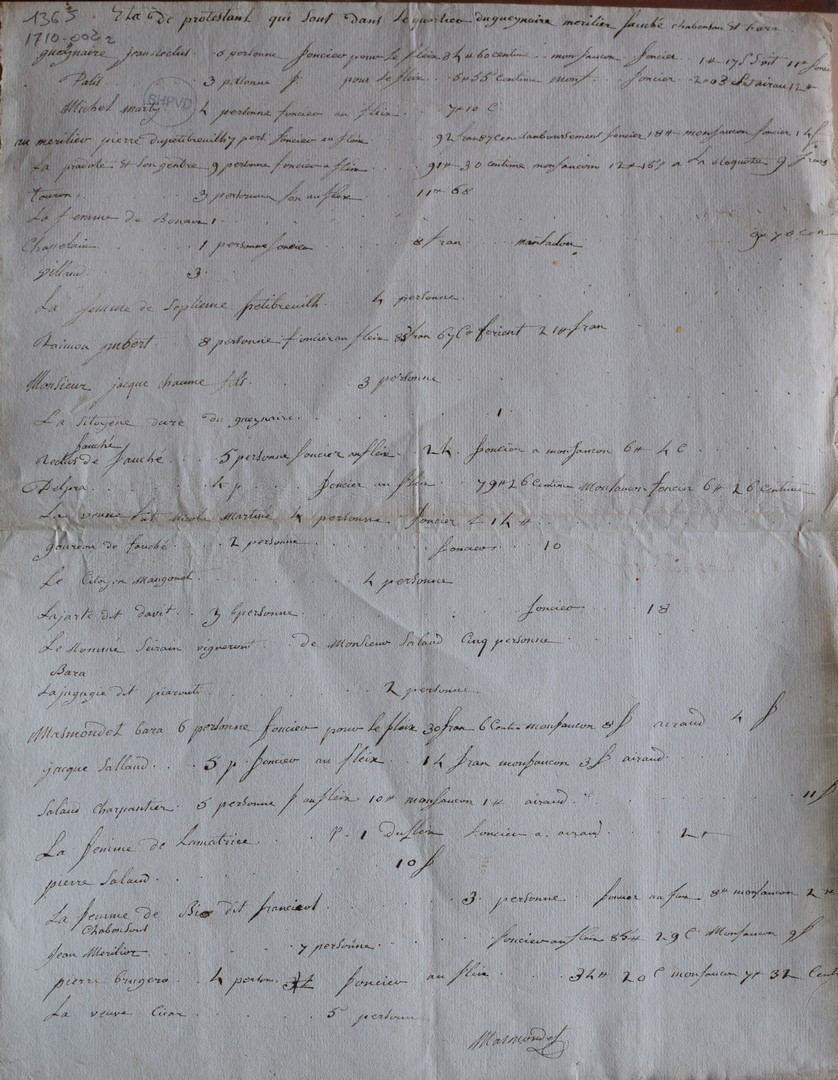 1363
Eta de protestant qui sont dans le quartier du gueynaire merilier fauché chabonson et bara
1710-002 2
gueynaire jean reclus . 6 personne foncier pour le fleix 34 # 60 centime monfaucon foncier 1 # 17
Patis 3 personne f pour le fleix 6 # 55 centime monf foncier 2 # 03 airau 12 #
SHPVD
Michel marty 4 personne foncier au fleix 7 # 10 C
au merilier pierre dupetibreuilh 7 pers. foncier au fleix 92 fran 87 cen foncier 18 # monfaucon foncier 14 f
La pradote et son gentre 9 personne foncier a fleix 91 # 30 centime monfaucon 12 # 15 f a La 9 frans
Touron 3 personne fon au fleix 11 # 68
La femme de Bonaux 1
Chasselain 1 personne foncier 8 fran montadon 9 # 70 cen
Gillard 3
La femme de Septieme petibreuilh 4 personne
Raimon jmbert 8 personne foncier au fleix fran 67 Co
Monsieur jacque chaume fils 3 personne
La Sitoyene dure du gueynaire 1
fauché
Reclus de fauché 5 personne foncier au fleix 24 foncier a monfaucon 6 # 4 C
Delpra 4 p. foncier au fleix 79 # 26 Centime Monfaucon foncier 6 # 26 Centime
La veuve Martine 4 personne foncier 14 #
gourdon de fauché 2 personne foncier 10
Le Citoyen Maugonet 4 personne
Lajarte dit davit 3 personne foncier 18
Le Nommé Seirain vigneront de Monsieur Salaud Cinq personne
Bara
Lajugie dit piarouti 2 personne
Masmondet bara 6 personne foncier pour le fleix 30 fran 6 Centi monfaucon 8 f airaud 4 f
jacque Sallaud 5 p. foncier au fleix 14 fran monfaucon 3 f airaud
Salaud Charpantier 5 personne f au fleix 10 # monfaucon 1 # airaud 11 f
La femme de Lamatrice P. 1 du fleix foncier a. airaud 2 #
pierre Salaud 10 f
La femme de Bio dit francicot 3 personne foncier au fleix 8 # monfaucon 2 #
Chabonsont
Jean Merilier 7 personne foncier au fleix 85 # 29 C Monfaucon 9 f
pierre brugere 4 person foncier au fleix 34 # 20 C monfaucon 7 # 32 Cent
La veuve Cirar 5 personne
Masmondet